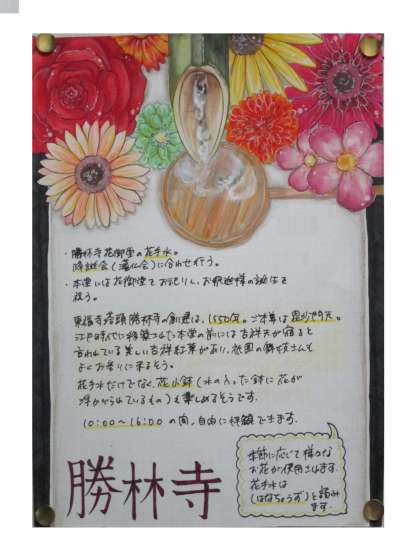 ・勝林寺花御堂の花手水。
降誕会(灌仏会)に合わせ行う。
・本堂には花御堂をお祀りし、お釈迦様の誕生を
祝う。
東福寺塔頭 勝林寺の創建は、1550年。ご本尊は毘沙門天。
江戸時代に移築された本堂の前には吉祥天が宿ると
言われている美しい吉祥紅葉があり、祇園の舞妓さんも
よくお参りに来るそう。
花手水だけでなく、花小鉢(水の入った鉢に花が
浮かべられているもの)も楽しめるそうです。
10:00~16:00の間、自由に拝観できます。
季節に応じて様々な
お花が使用されます。
花手水は
(はなちょうず)と読み
ます。
勝林寺